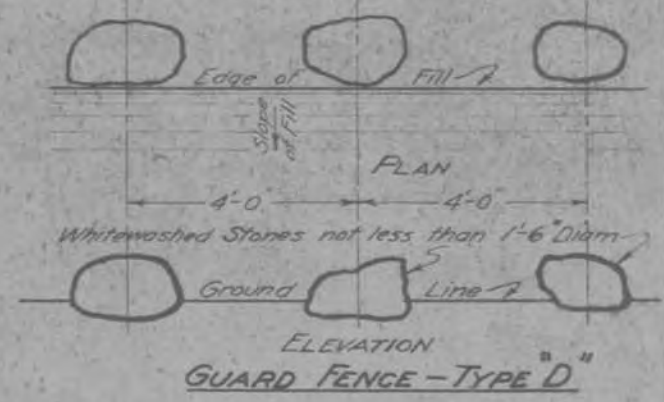 Edge of Fill
Slope
of Fill
PLAN
4'-0" 4'-0"
Whitewashed Stones not less than 1'-6" Diam
Ground Line
ELEVATION
GUARD FENCE - TYPE "D"